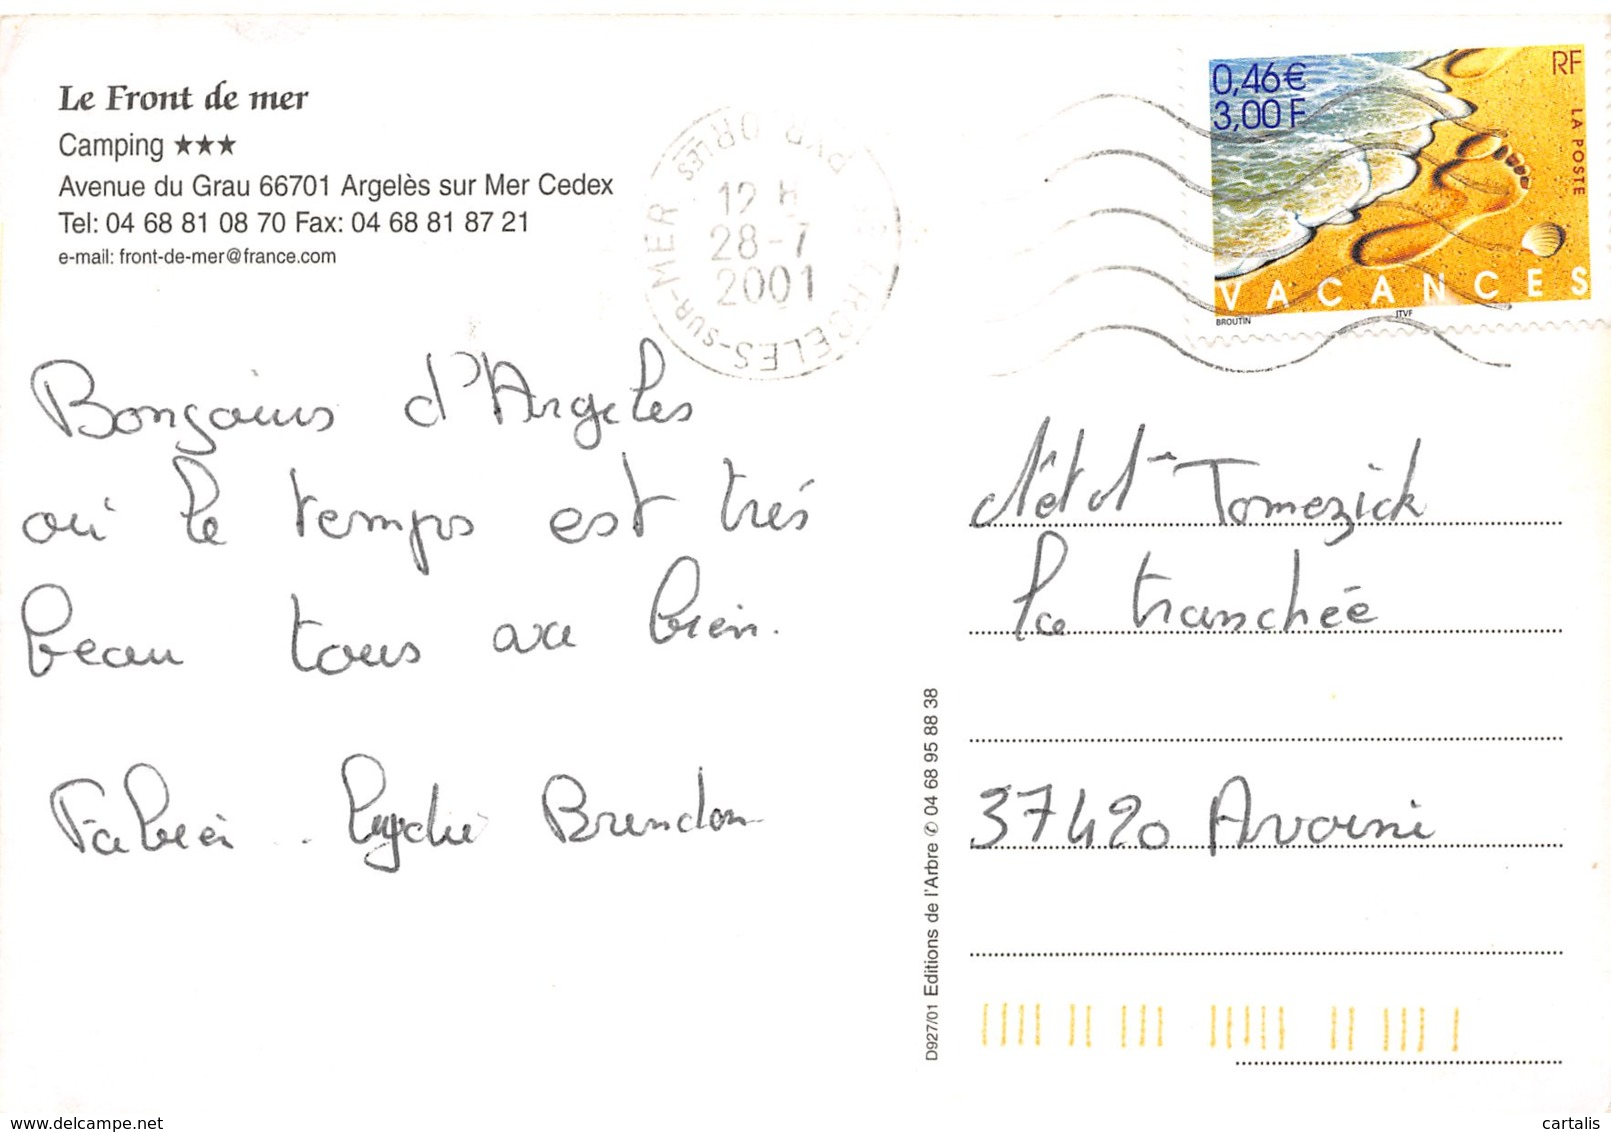 Le Front de mer
Camping ★★★
Avenue du Grau 66701 Argelès sur Mer Cedex
Tel: 04 68 81 08 70 Fax: 04 68 81 87 21
e-mail: front-de-mer@france.com
PYR ORLES
66 ARGELES-SUR-MER
12 H
28-7
2001
0,46€
3,00 F
RF
LA POSTE
VACANCES
BROUTIN
ITVF
Bonjours d'Argeles
où le temps est trés
beau tous va bien.
Fabien . Lydie Brendon
M et Mme Tomezick
la tranchée
37420 Avoine
D927/01 Editions de l'Arbre ✆ 04 68 95 88 38
www.delcampe.net
cartalis